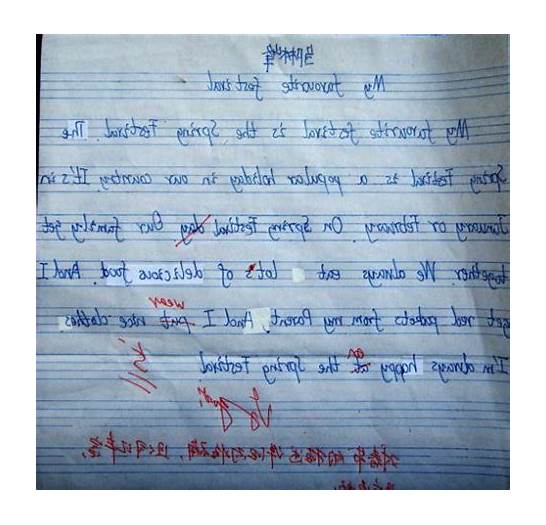 My favourite festival
My favourite festival is the Spring Festival. The
Spring Festival is a popular holiday in our country. It's in
January or February. On Spring Festival day Our family get
together. We always eat lots of delicious food. And I
wear
get red packets from my Parent. And I put nice clothes.
on
I'm always happy at the Spring Festival
Very good!